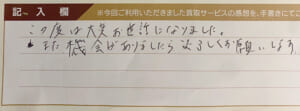 記入欄 ※今回ご利用いただきました買取サービスの感想を、手書きにてご
この度は大変お世話になりました。
また機会がありましたらよろしくお願いします。